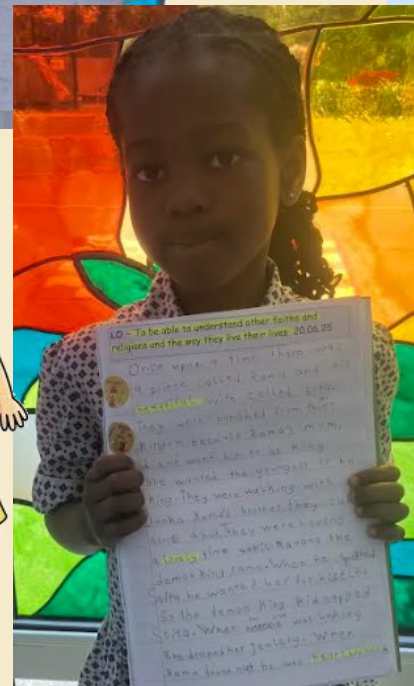 LO - To be able to understand other faiths and
religions and the way they live their lives. 20.06.25
Once upon a time there was
a prince called Rama and his
wife called Sita.
They were banished from their
because Rama's mom,
want him to be king
she wanted the youngest to be
king. They were walking with
Rama's brother they
a hut. They were having
time until Ravana the
demon king came. When he spotted
Sita he wanted her for his
so the demon king kidnapped
Sita. When was
she dropped her . When
Rama found out he was